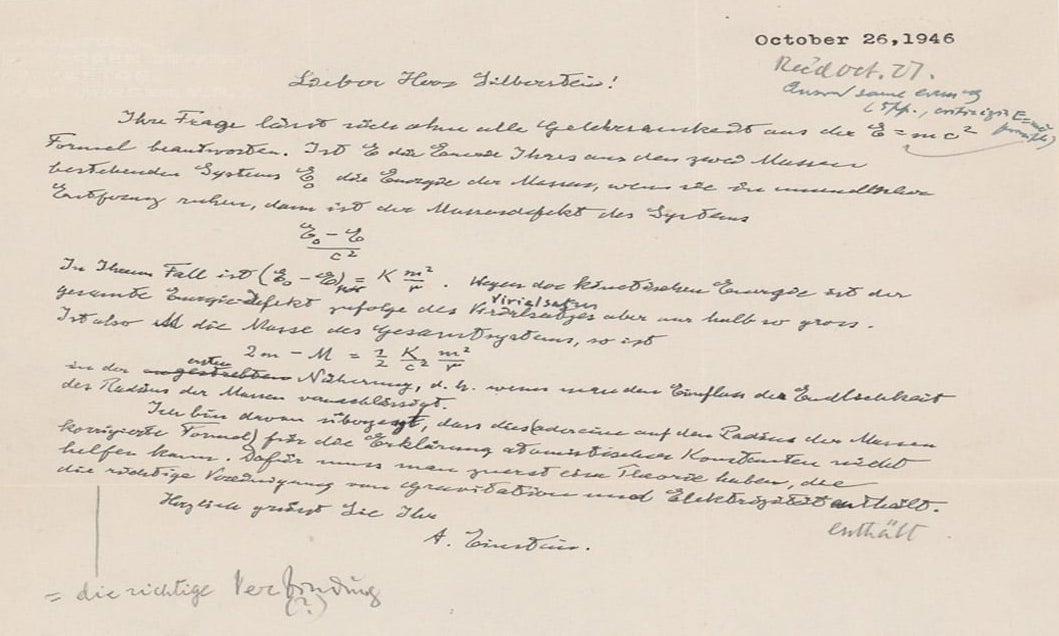 October 26, 1946
Rec'd Oct. 27.
Lieber Herr Silberstein!
Ihre Frage lässt sich ohne alle Gelehrsamkeit aus der E = mc²
Formel beantworten. Ist E die Energie Ihres aus den zwei Massen
bestehenden Systems E₀ die Energie der Massen, wenn sie in unendlicher
Entfernung ruhen, dann ist der Massendefekt des Systems
E₀ - E / c²
In Ihrem Fall ist (E₀ - E)pot = K m²/r . Wegen der kinetischen Energie ist der
Virialsatzes
gesamte Energiedefekt zufolge des Virialsatzes aber nur halb so gross.
Ist also M die Masse des Gesamtsystems, so ist
2m - M = 1/2 K/c² m²/r
ersten
in der angestrebten Näherung, d. h. wenn man den Einfluss der Endlichkeit
des Radius der Massen vernachlässigt.
Ich bin davon überzeugt, dass dies (oder eine auf den Radius der Massen
korrigierte Formel) für die Erklärung atomistischer Konstanten nicht
helfen kann. Dafür muss man zuerst eine Theorie haben, die
die richtige Vereinigung von Gravitation und Elektrizität enthält.
Herzlich grüsst Sie Ihr
enthält
A. Einstein.
= die richtige Verbindung
(?)